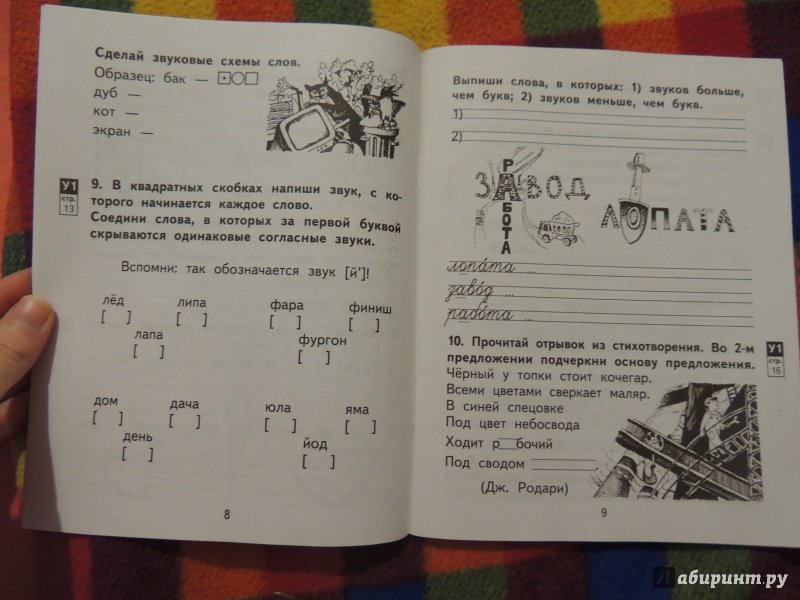 Сделай звуковые схемы слов.
Образец: бак —
дуб —
кот —
экран —
У1
стр.
13
9. В квадратных скобках напиши звук, с ко-
торого начинается каждое слово.
Соедини слова, в которых за первой буквой
скрываются одинаковые согласные звуки.
Вспомни: так обозначается звук [й']!
лёд липа фара финиш
[ ] [ ] [ ] [ ]
лапа фургон
[ ] [ ]
дом дача юла яма
[ ] [ ] [ ] [ ]
день йод
[ ] [ ]
8
Выпиши слова, в которых: 1) звуков больше,
чем букв; 2) звуков меньше, чем букв.
1)
2)
ЗАВОД
РАБОТА
ЛОПАТА
лопáта ...
завóд ...
рабóта ...
10. Прочитай отрывок из стихотворения. Во 2-м
предложении подчеркни основу предложения.
У1
стр.
16
Чёрный у топки стоит кочегар.
Всеми цветами сверкает маляр.
В синей спецовке
Под цвет небосвода
Ходит р__бочий
Под сводом ________
(Дж. Родари)
9
Лабиринт.ру